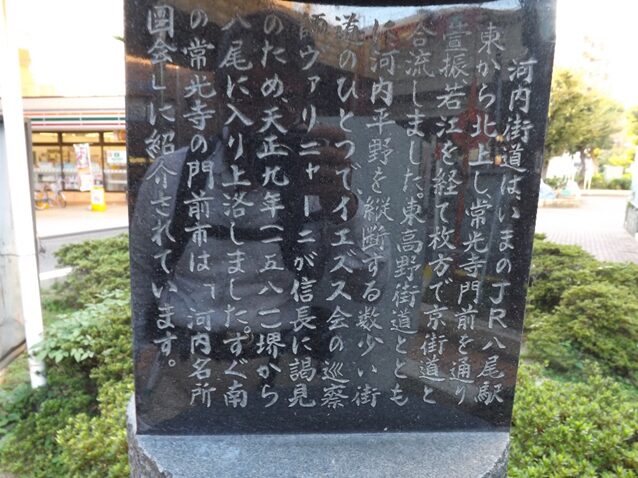 河内街道はいまのJR八尾駅
東から北上し常光寺門前を通り
萱振若江を経て枚方で京街道と
合流しました。東高野街道ととも
に河内平野を縦断する数少い街
道のひとつで、イエズス会の巡察
師ヴァリニャーニが信長に謁見
のため、天正九年(一五八一)堺から
八尾に入り上洛しました。すぐ南
の常光寺の門前市は「河内名所
図会」に紹介されています。